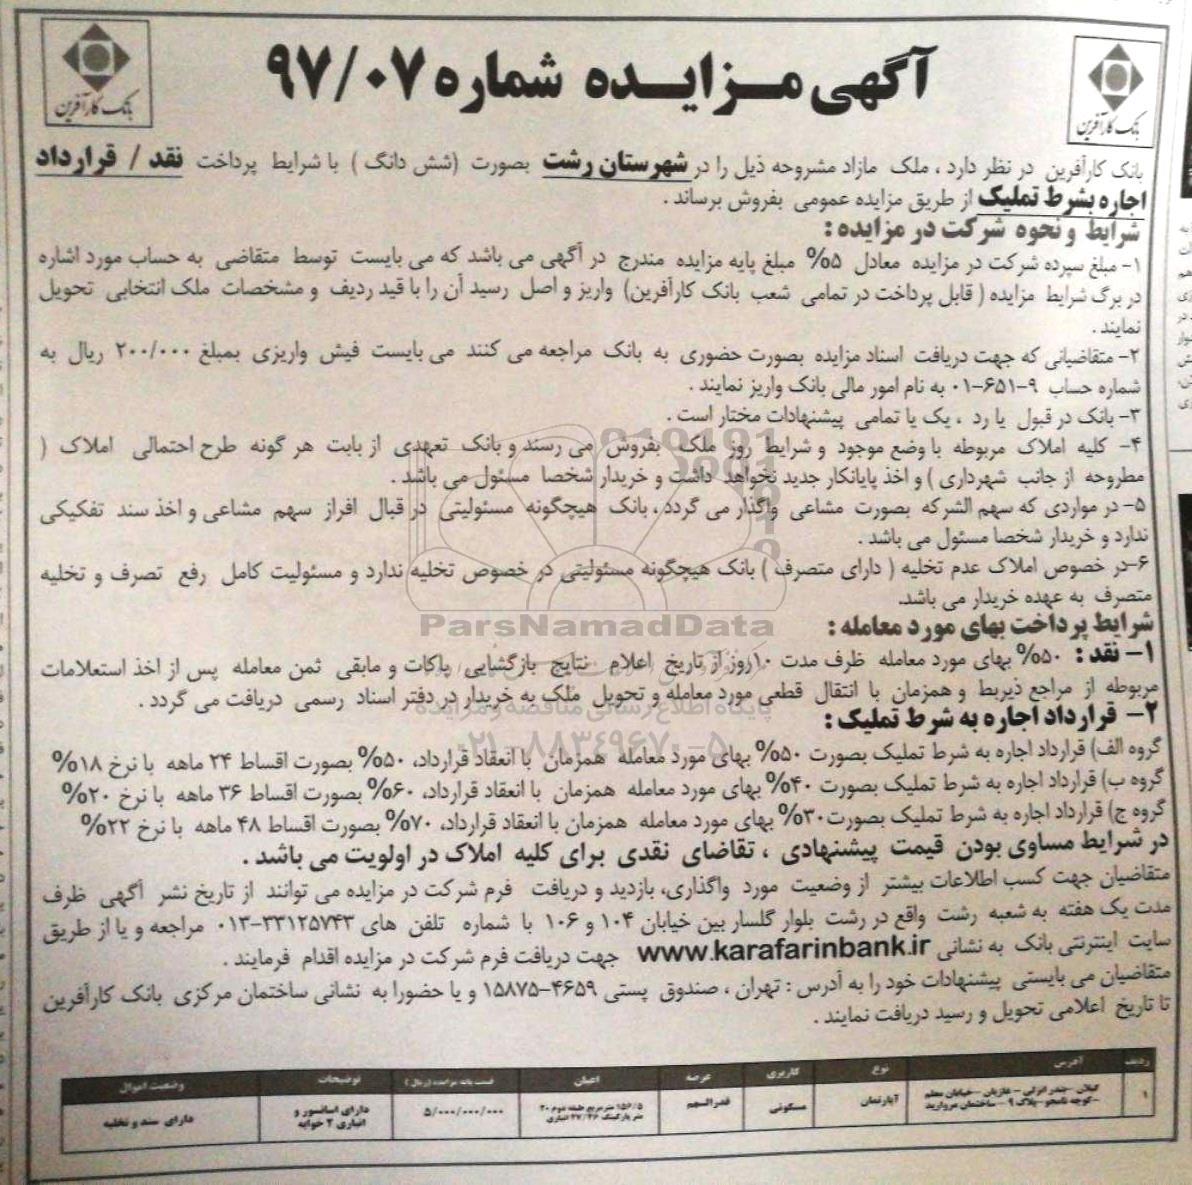 بانک کارآفرین
بانک کارآفرین
آگهی مـزایـده شماره ۹۷/۰۷
بانک کارآفرین در نظر دارد ، ملک مازاد مشروحه ذیل را در شهرستان رشت بصورت (شش دانگ ) با شرایط پرداخت نقد / قرارداد
اجاره بشرط تملیک از طریق مزایده عمومی بفروش برساند .
شرایط و نحوه شرکت در مزایده :
۱- مبلغ سپرده شرکت در مزایده معادل ۵% مبلغ پایه مزایده مندرج در آگهی می باشد که می بایست توسط متقاضی به حساب مورد اشاره
در برگ شرایط مزایده ( قابل پرداخت در تمامی شعب بانک کارآفرین) واریز و اصل رسید آن را با قید ردیف و مشخصات ملک انتخابی تحویل
نمایند .
۲- متقاضیانی که جهت دریافت اسناد مزایده بصورت حضوری به بانک مراجعه می کنند می بایست فیش واریزی بمبلغ ۲۰۰/۰۰۰ ریال به
شماره حساب ۹-۶۵۱-۰۱ به نام امور مالی بانک واریز نمایند .
۳- بانک در قبول یا رد ، یک یا تمامی پیشنهادات مختار است .
۴- کلیه املاک مربوطه با وضع موجود و شرایط روز ملک بفروش می رسند و بانک تعهدی از بابت هر گونه طرح احتمالی املاک (
مطروحه از جانب شهرداری ) و اخذ پایانکار جدید نخواهد داشت و خریدار شخصا مسئول می باشد .
۵- در مواردی که سهم الشرکه بصورت مشاعی واگذار می گردد ، بانک هیچگونه مسئولیتی در قبال افراز سهم مشاعی و اخذ سند تفکیکی
ندارد و خریدار شخصا مسئول می باشد .
۶-در خصوص املاک عدم تخلیه ( دارای متصرف ) بانک هیچگونه مسئولیتی در خصوص تخلیه ندارد و مسئولیت کامل رفع تصرف و تخلیه
متصرف به عهده خریدار می باشد.
ParsNamadData
شرایط پرداخت بهای مورد معامله :
۱- نقد : ۵۰% بهای مورد معامله ظرف مدت ۱۰روز از تاریخ اعلام نتایج بازگشایی پاکات و مابقی ثمن معامله پس از اخذ استعلامات
مربوطه از مراجع ذیربط و همزمان با انتقال قطعی مورد معامله و تحویل ملک به خریدار در دفتر اسناد رسمی دریافت می گردد .
پایگاه اطلاع رسانی مناقصه و مزایده
۲- قرارداد اجاره به شرط تملیک :
۰۲۱-۸۸۳۴۹۶۷۰-۵
گروه الف) قرارداد اجاره به شرط تملیک بصورت ۵۰% بهای مورد معامله همزمان با انعقاد قرارداد، ۵۰% بصورت اقساط ۲۴ ماهه با نرخ ۱۸%
گروه ب) قرارداد اجاره به شرط تملیک بصورت ۴۰% بهای مورد معامله همزمان با انعقاد قرارداد، ۶۰% بصورت اقساط ۳۶ ماهه با نرخ ۲۰%
گروه ج) قرارداد اجاره به شرط تملیک بصورت۳۰% بهای مورد معامله همزمان با انعقاد قرارداد، ۷۰% بصورت اقساط ۴۸ ماهه با نرخ ۲۲%
در شرایط مساوی بودن قیمت پیشنهادی ، تقاضای نقدی برای کلیه املاک در اولویت می باشد .
متقاضیان جهت کسب اطلاعات بیشتر از وضعیت مورد واگذاری، بازدید و دریافت فرم شرکت در مزایده می توانند از تاریخ نشر آگهی ظرف
مدت یک هفته به شعبه رشت واقع در رشت بلوار گلسار بین خیابان ۱۰۴ و ۱۰۶ با شماره تلفن های ۳۳۱۲۵۷۴۳-۰۱۳ مراجعه و یا از طریق
سایت اینترنتی بانک به نشانی www.karafarinbank.ir جهت دریافت فرم شرکت در مزایده اقدام فرمایند .
متقاضیان می بایستی پیشنهادات خود را به آدرس : تهران ، صندوق پستی ۴۶۵۹-۱۵۸۷۵ و یا حضورا به نشانی ساختمان مرکزی بانک کارآفرین
تا تاریخ اعلامی تحویل و رسید دریافت نمایند .
ردیف آدرس نوع کاربری عرصه اعیان قیمت پایه مزایده (ریال) توضیحات وضعیت اموال
۱ گیلان -بندر انزلی - غازیان - خیابان معلم -کوچه نامجو-پلاک ۹ -ساختمان مروارید آپارتمان مسکونی قدرالسهم ۱۵۶/۵ مترمربع طبقه دوم ۲۰ متر پارکینگ ۲۷/۳۶ انباری ۵/۰۰۰/۰۰۰/۰۰۰ دارای آسانسور و انباری ۲ خوابه دارای سند و تخلیه